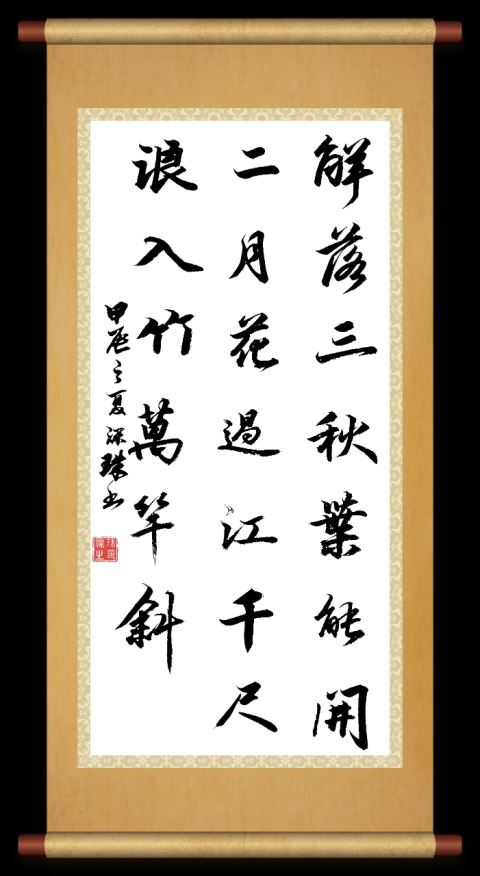 解落三秋葉能開
二月花過江千尺
浪入竹萬竿斜
甲辰之夏深珠书